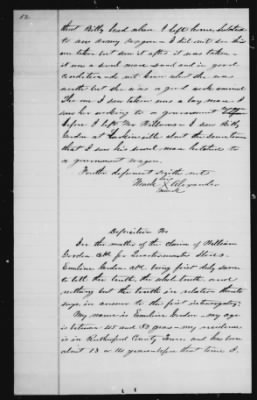 12
that Billy used when I left home hitched
to an army wagon - I did not see this
one taken but saw it after it was taken -
it was a sorrel mare and in good
condition I do not know what she was
worth but she was a good work animal
The one I saw taken was a bay mare I
saw her working to a government
before I left Mr I saw Billy
Gordon at about the time
that I saw his sorrel mare hitched to
a government wagon.
Further deponent sayeth not
his
X Alexander
mark
Deposition No
In the matter of the claim of William
Gordon
Emeline Gordon being first duly sworn
to tell the truth, the whole truth and
nothing but the truth in relation thereto
says in answer to the first interrogatory:
My name is Emeline Gordon - my age
is between 45 and 50 years - my residence
is in Rutherford County Tenn and has been
about 13 or 14 years before that time I